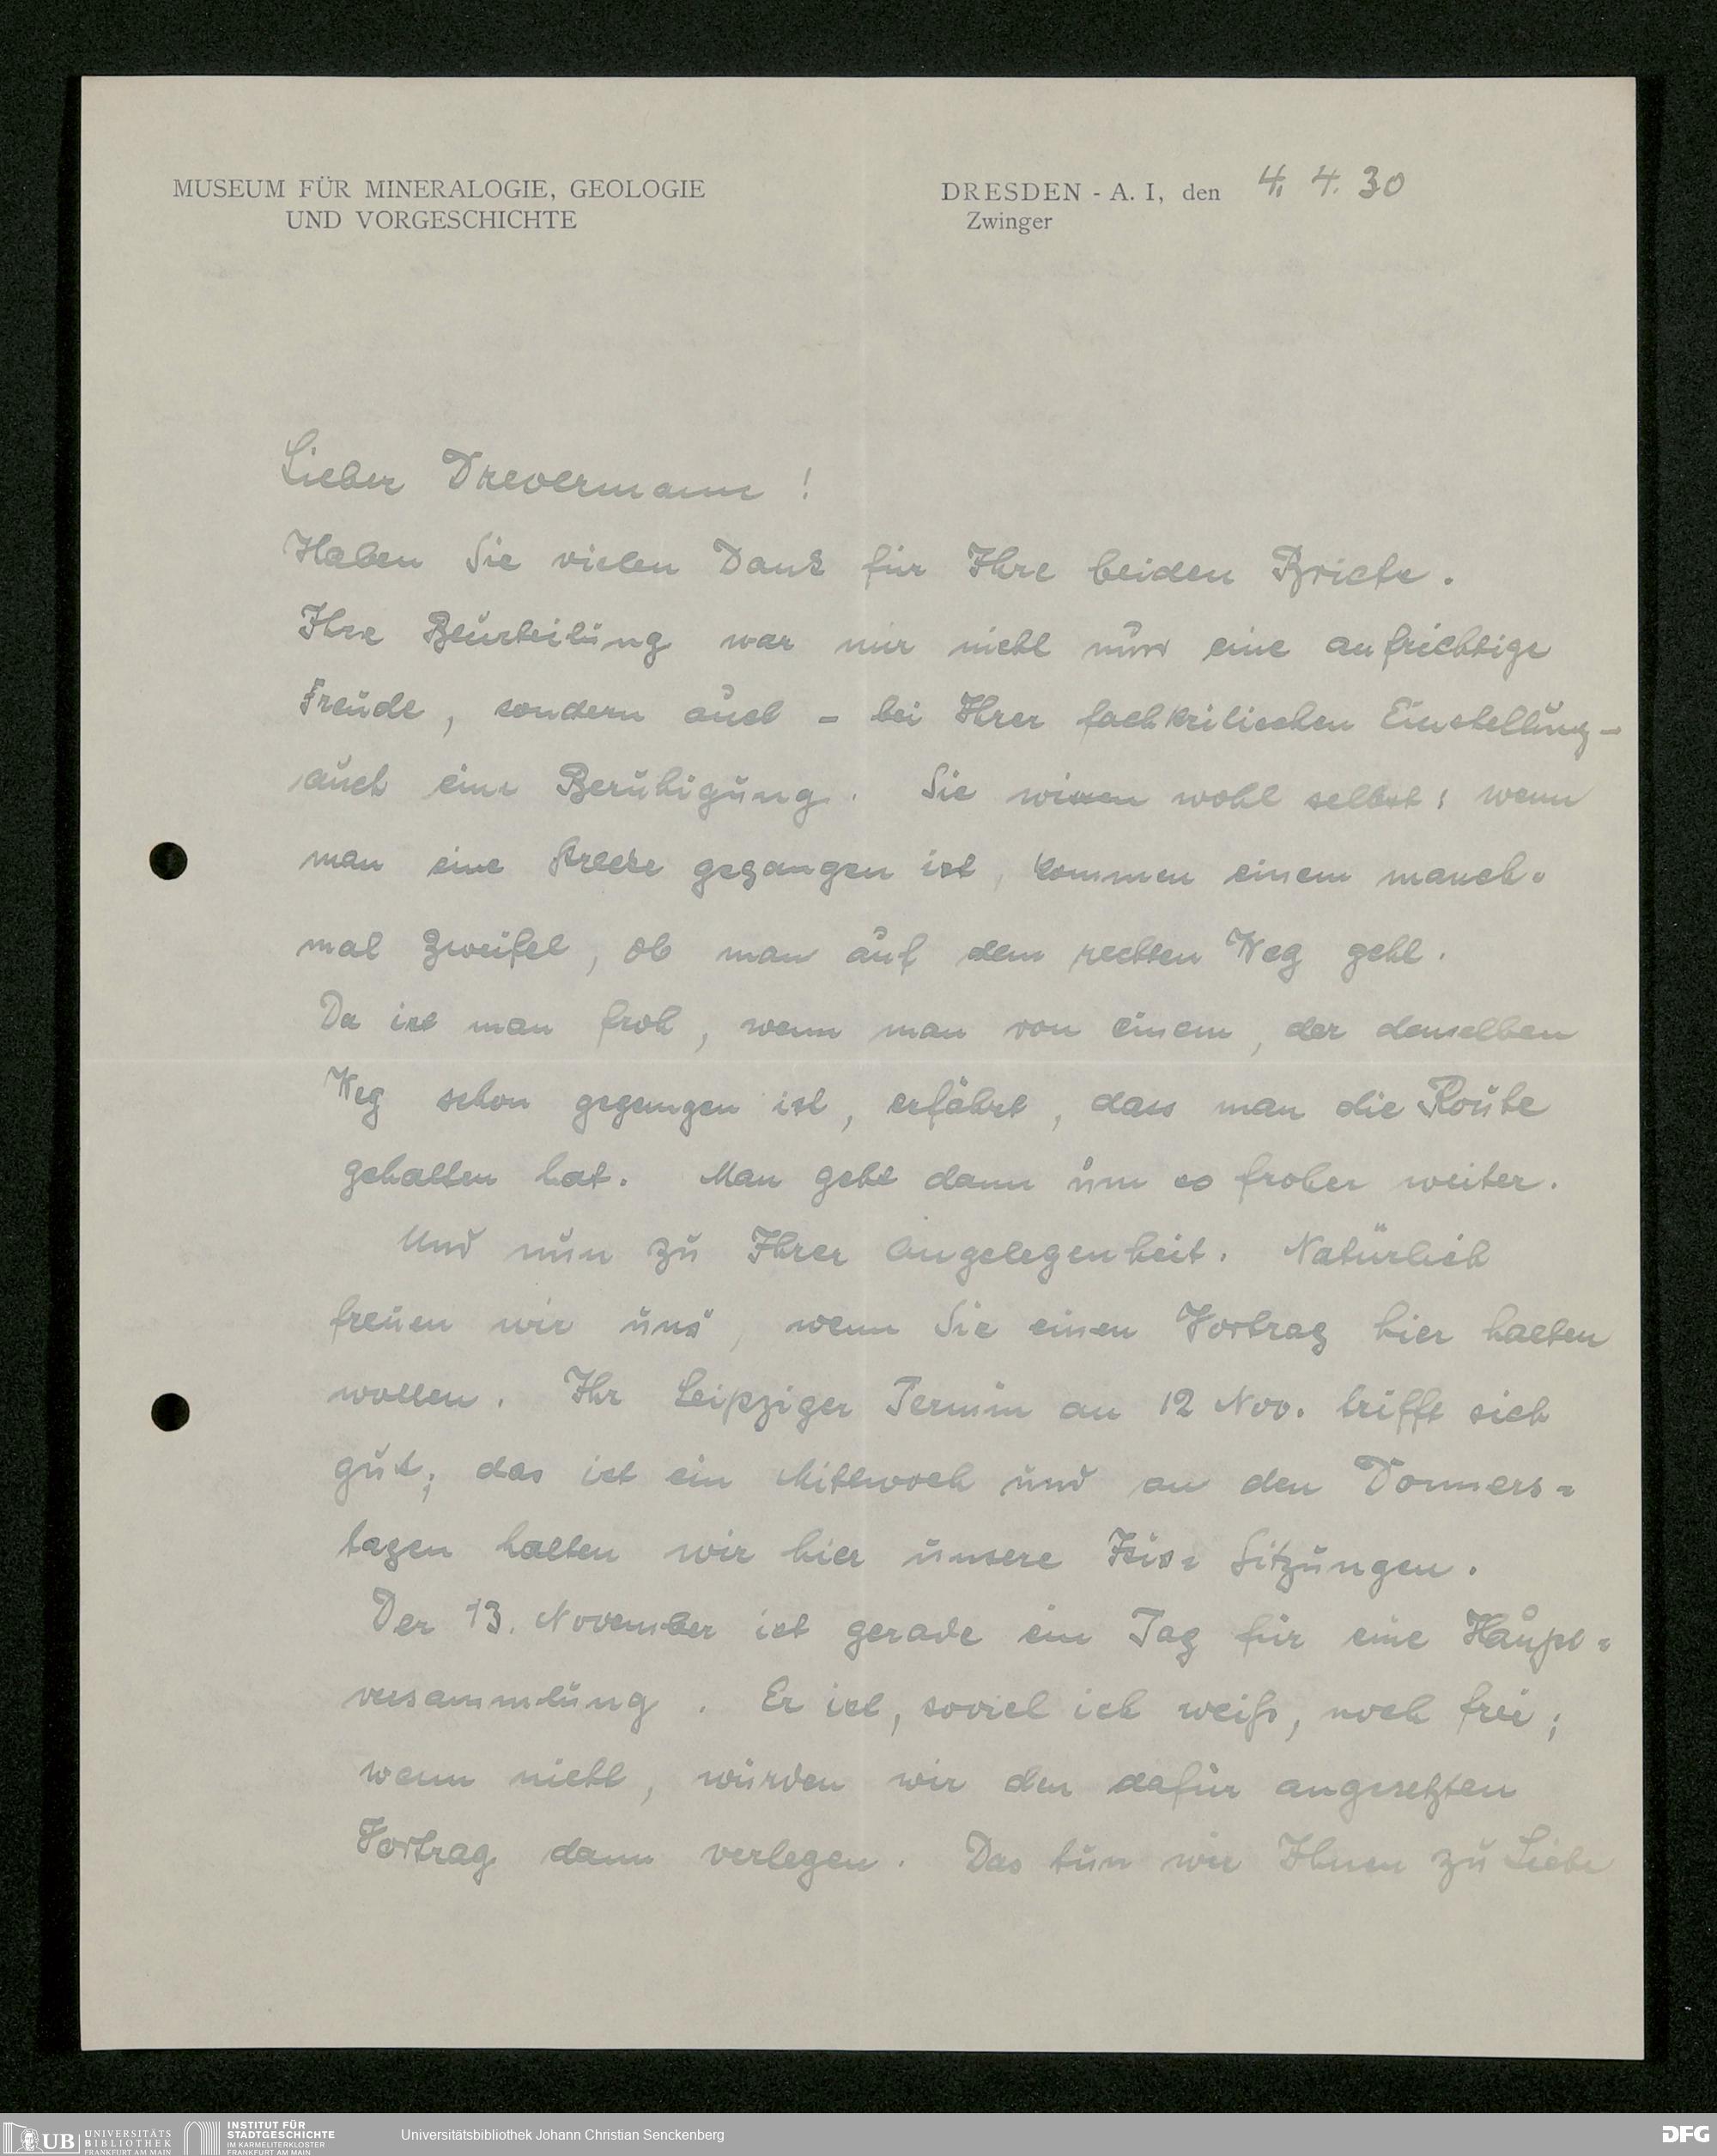 MUSEUM FÜR MINERALOGIE, GEOLOGIE
UND VORGESCHICHTE
DRESDEN - A. I, den 4. 4. 30
Zwinger
Lieber Drevermann !
Haben Sie vielen Dank für Ihre beiden Briefe.
Ihre Beurteilung war mir nicht nur eine aufrichtige
Freude, sondern auch - bei Ihrer fachkritischen Einstellung -
auch eine Beruhigung. Sie wissen wohl selbst: wenn
man eine Strecke gegangen ist, kommen einem manch-
mal Zweifel, ob man auf dem rechten Weg geht.
Da ist man froh, wenn man von einem, der denselben
Weg schon gegangen ist, erfährt, dass man die Route
gehalten hat. Man geht dann um so froher weiter.
Und nun zu Ihrer Angelegenheit. Natürlich
freuen wir uns, wenn Sie einen Vortrag hier halten
wollen. Ihr Leipziger Termin am 12 Nov. trifft sich
gut; das ist ein Mittwoch und an den Donners-
tagen halten wir hier unsere Isis- Sitzungen.
Der 13. November ist gerade ein Tag für eine Haupt-
versammlung. Er ist, soviel ich weiß, noch frei;
wenn nicht, würden wir den dafür angesetzten
Vortrag dann verlegen. Das tun wir Ihnen zu Liebe
UB UNIVERSITÄTS
BIBLIOTHEK
FRANKFURT AM MAIN
INSTITUT FÜR
STADTGESCHICHTE
IM KARMELITERKLOSTER
FRANKFURT AM MAIN
Universitätsbibliothek Johann Christian Senckenberg
DFG